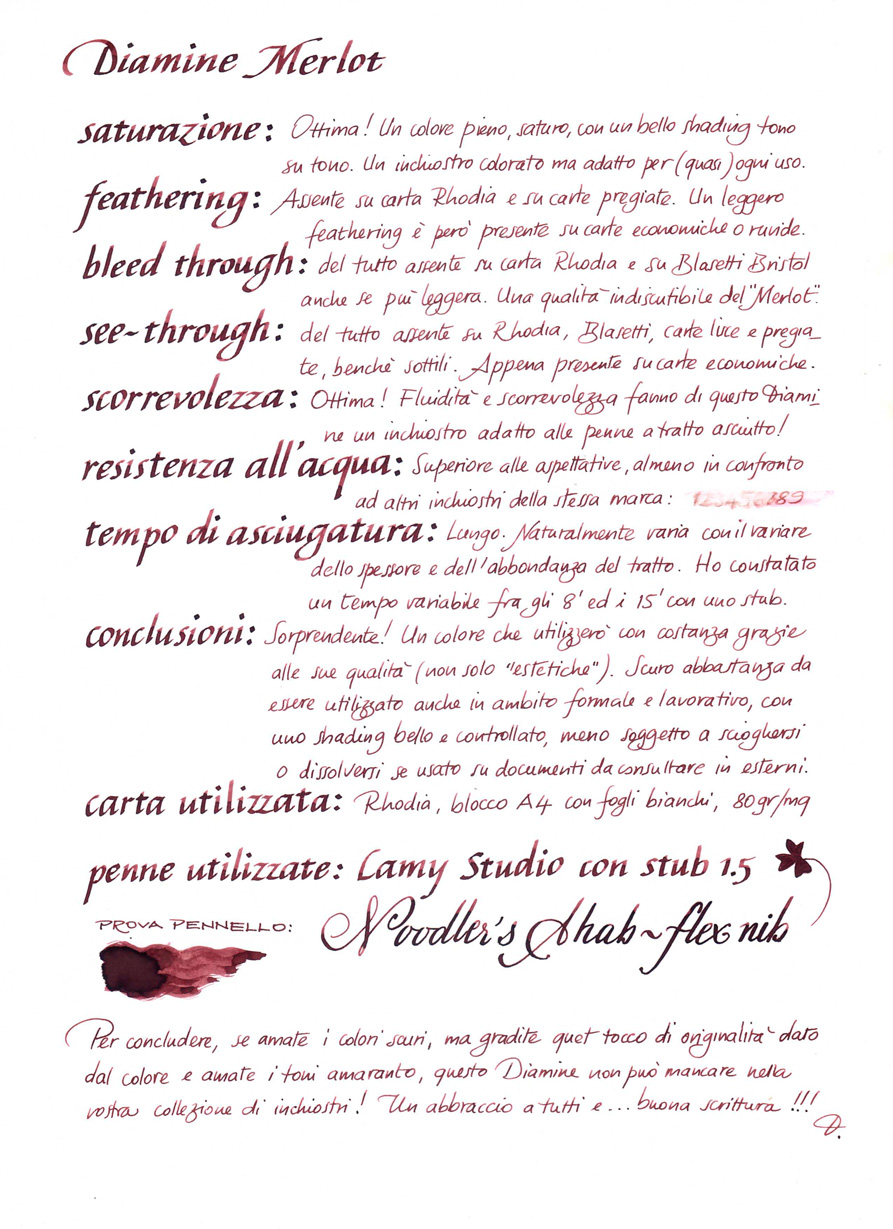 Diamine Merlot
saturazione: Ottima! Un colore pieno, saturo, con un bello shading tono
su tono. Un inchiostro colorato ma adatto per (quasi) ogni uso.
feathering: Assente su carta Rhodia e su carte pregiate. Un leggero
feathering è però presente su carte economiche o ruvide.
bleed through: del tutto assente su carta Rhodia e su Blasetti Bristol
anche se più leggera. Una qualità indiscutibile del "Merlot".
see~through: del tutto assente su Rhodia, Blasetti, carte lisce e pregia_
te, benchè sottili. Appena presente su carte economiche.
scorrevolezza: Ottima! Fluidità e scorrevolezza fanno di questo Diami_
ne un inchiostro adatto alle penne a tratto asciutto!
resistenza all'acqua: Superiore alle aspettative, almeno in confronto
ad altri inchiostri della stessa marca: 123456789
tempo di asciugatura: Lungo. Naturalmente varia con il variare
dello spessore e dell'abbondanza del tratto. Ho constatato
un tempo variabile fra gli 8' ed i 15' con uno stub.
conclusioni: Sorprendente! Un colore che utilizzerò con costanza grazie
alle sue qualità (non solo "estetiche"). Scuro abbastanza da
essere utilizzato anche in ambito formale e lavorativo, con
uno shading bello e controllato, meno soggetto a sciogliersi
o dissolversi se usato su documenti da consultare in esterni.
carta utilizzata: Rhodia, blocco A4 con fogli bianchi, 80gr/mq
penne utilizzate: Lamy Studio con stub 1.5
PROVA PENNELLO: Noodler's Ahab~flex nib
Per concludere, se amate i colori scuri, ma gradite quel tocco di originalità dato
dal colore e amate i toni amaranto, questo Diamine non può mancare nella
vostra collezione di inchiostri! Un abbraccio a tutti e... buona scrittura !!!
D.